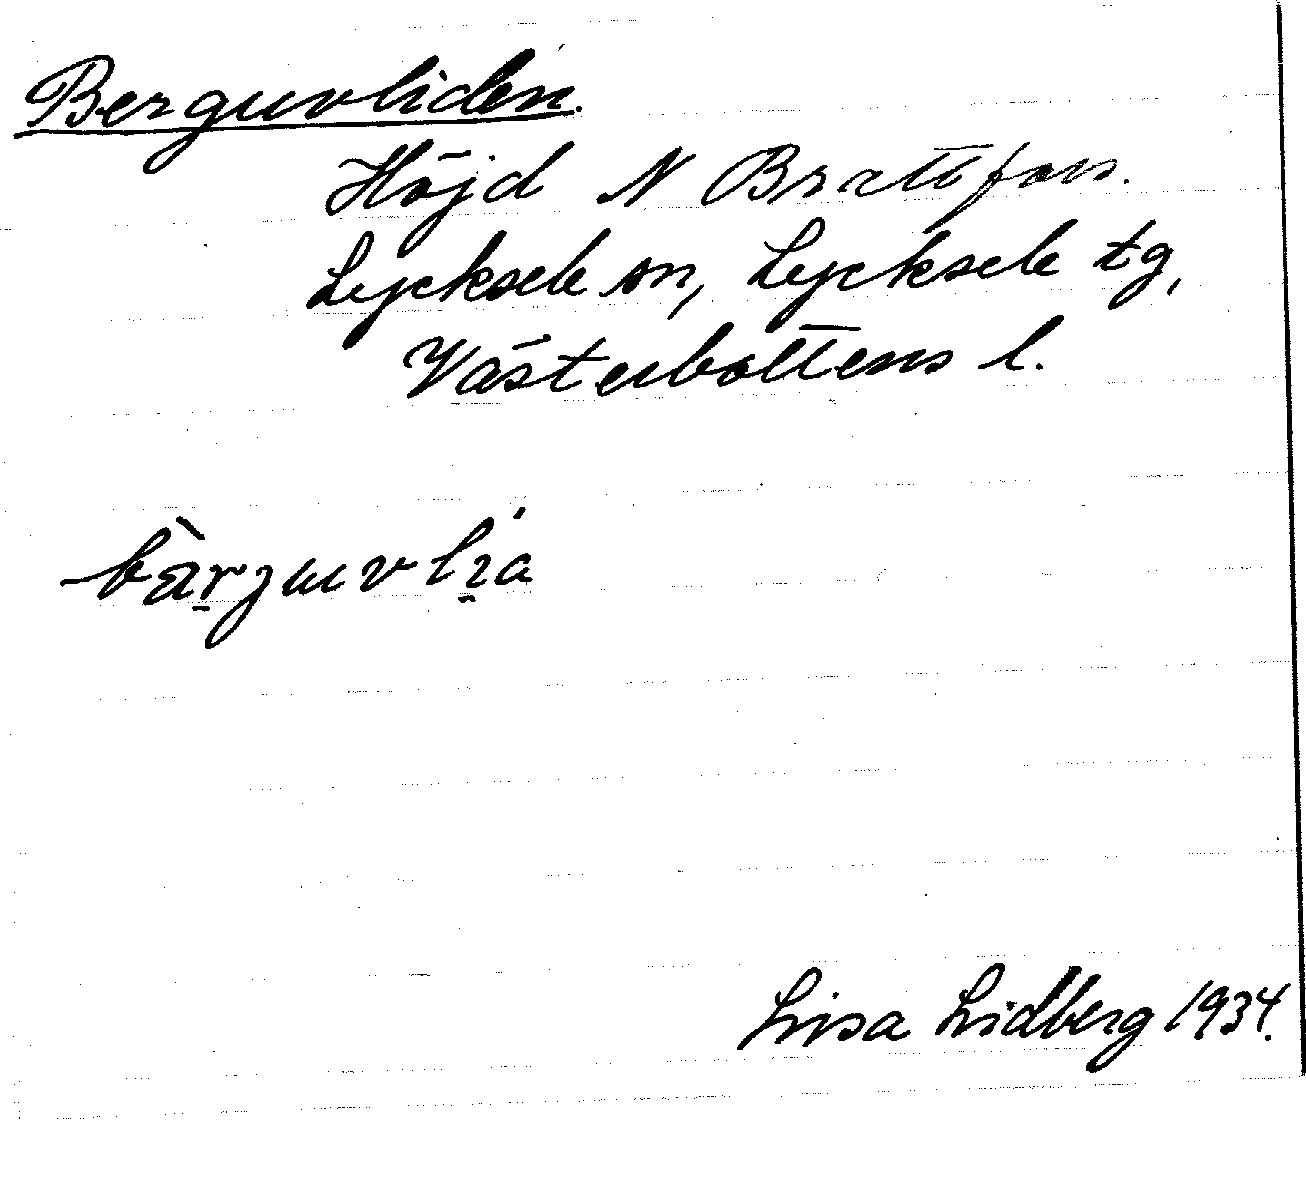 Berguvliden.
Höjd N Brattfors.
Lycksele sn, Lycksele tg,
Västerbottens l.
Lisa Lidberg 1934.